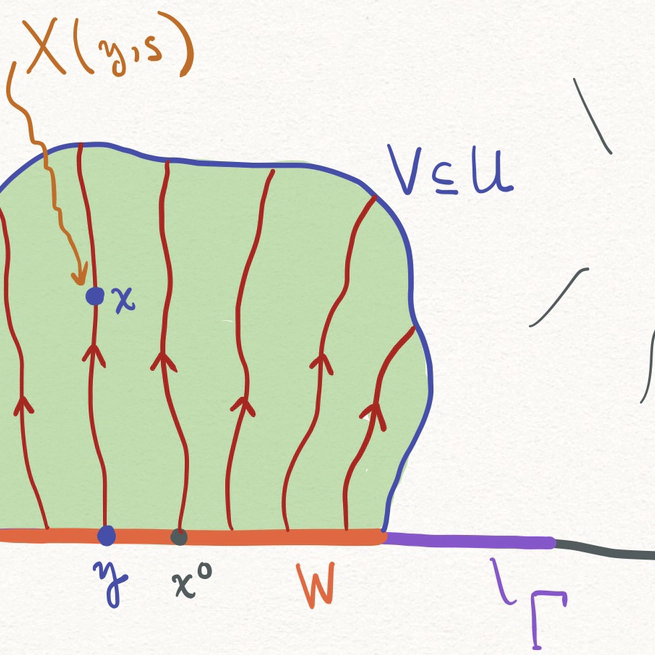 X(y,s)
V⊆U
x
y
x⁰
W
Γ